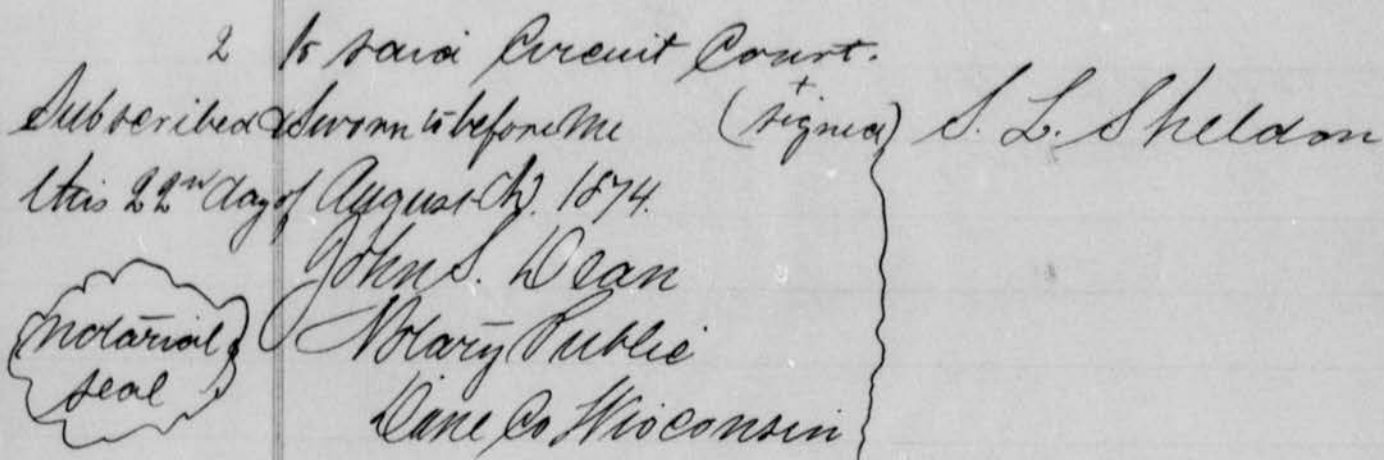 2 to said Circuit Court.
Subscribed & Sworn to before me (signed) S. L. Sheldon
this 22nd day of August A.D. 1874.
John S. Dean
Notary Public
Dane Co Wisconsin
Notarial
seal